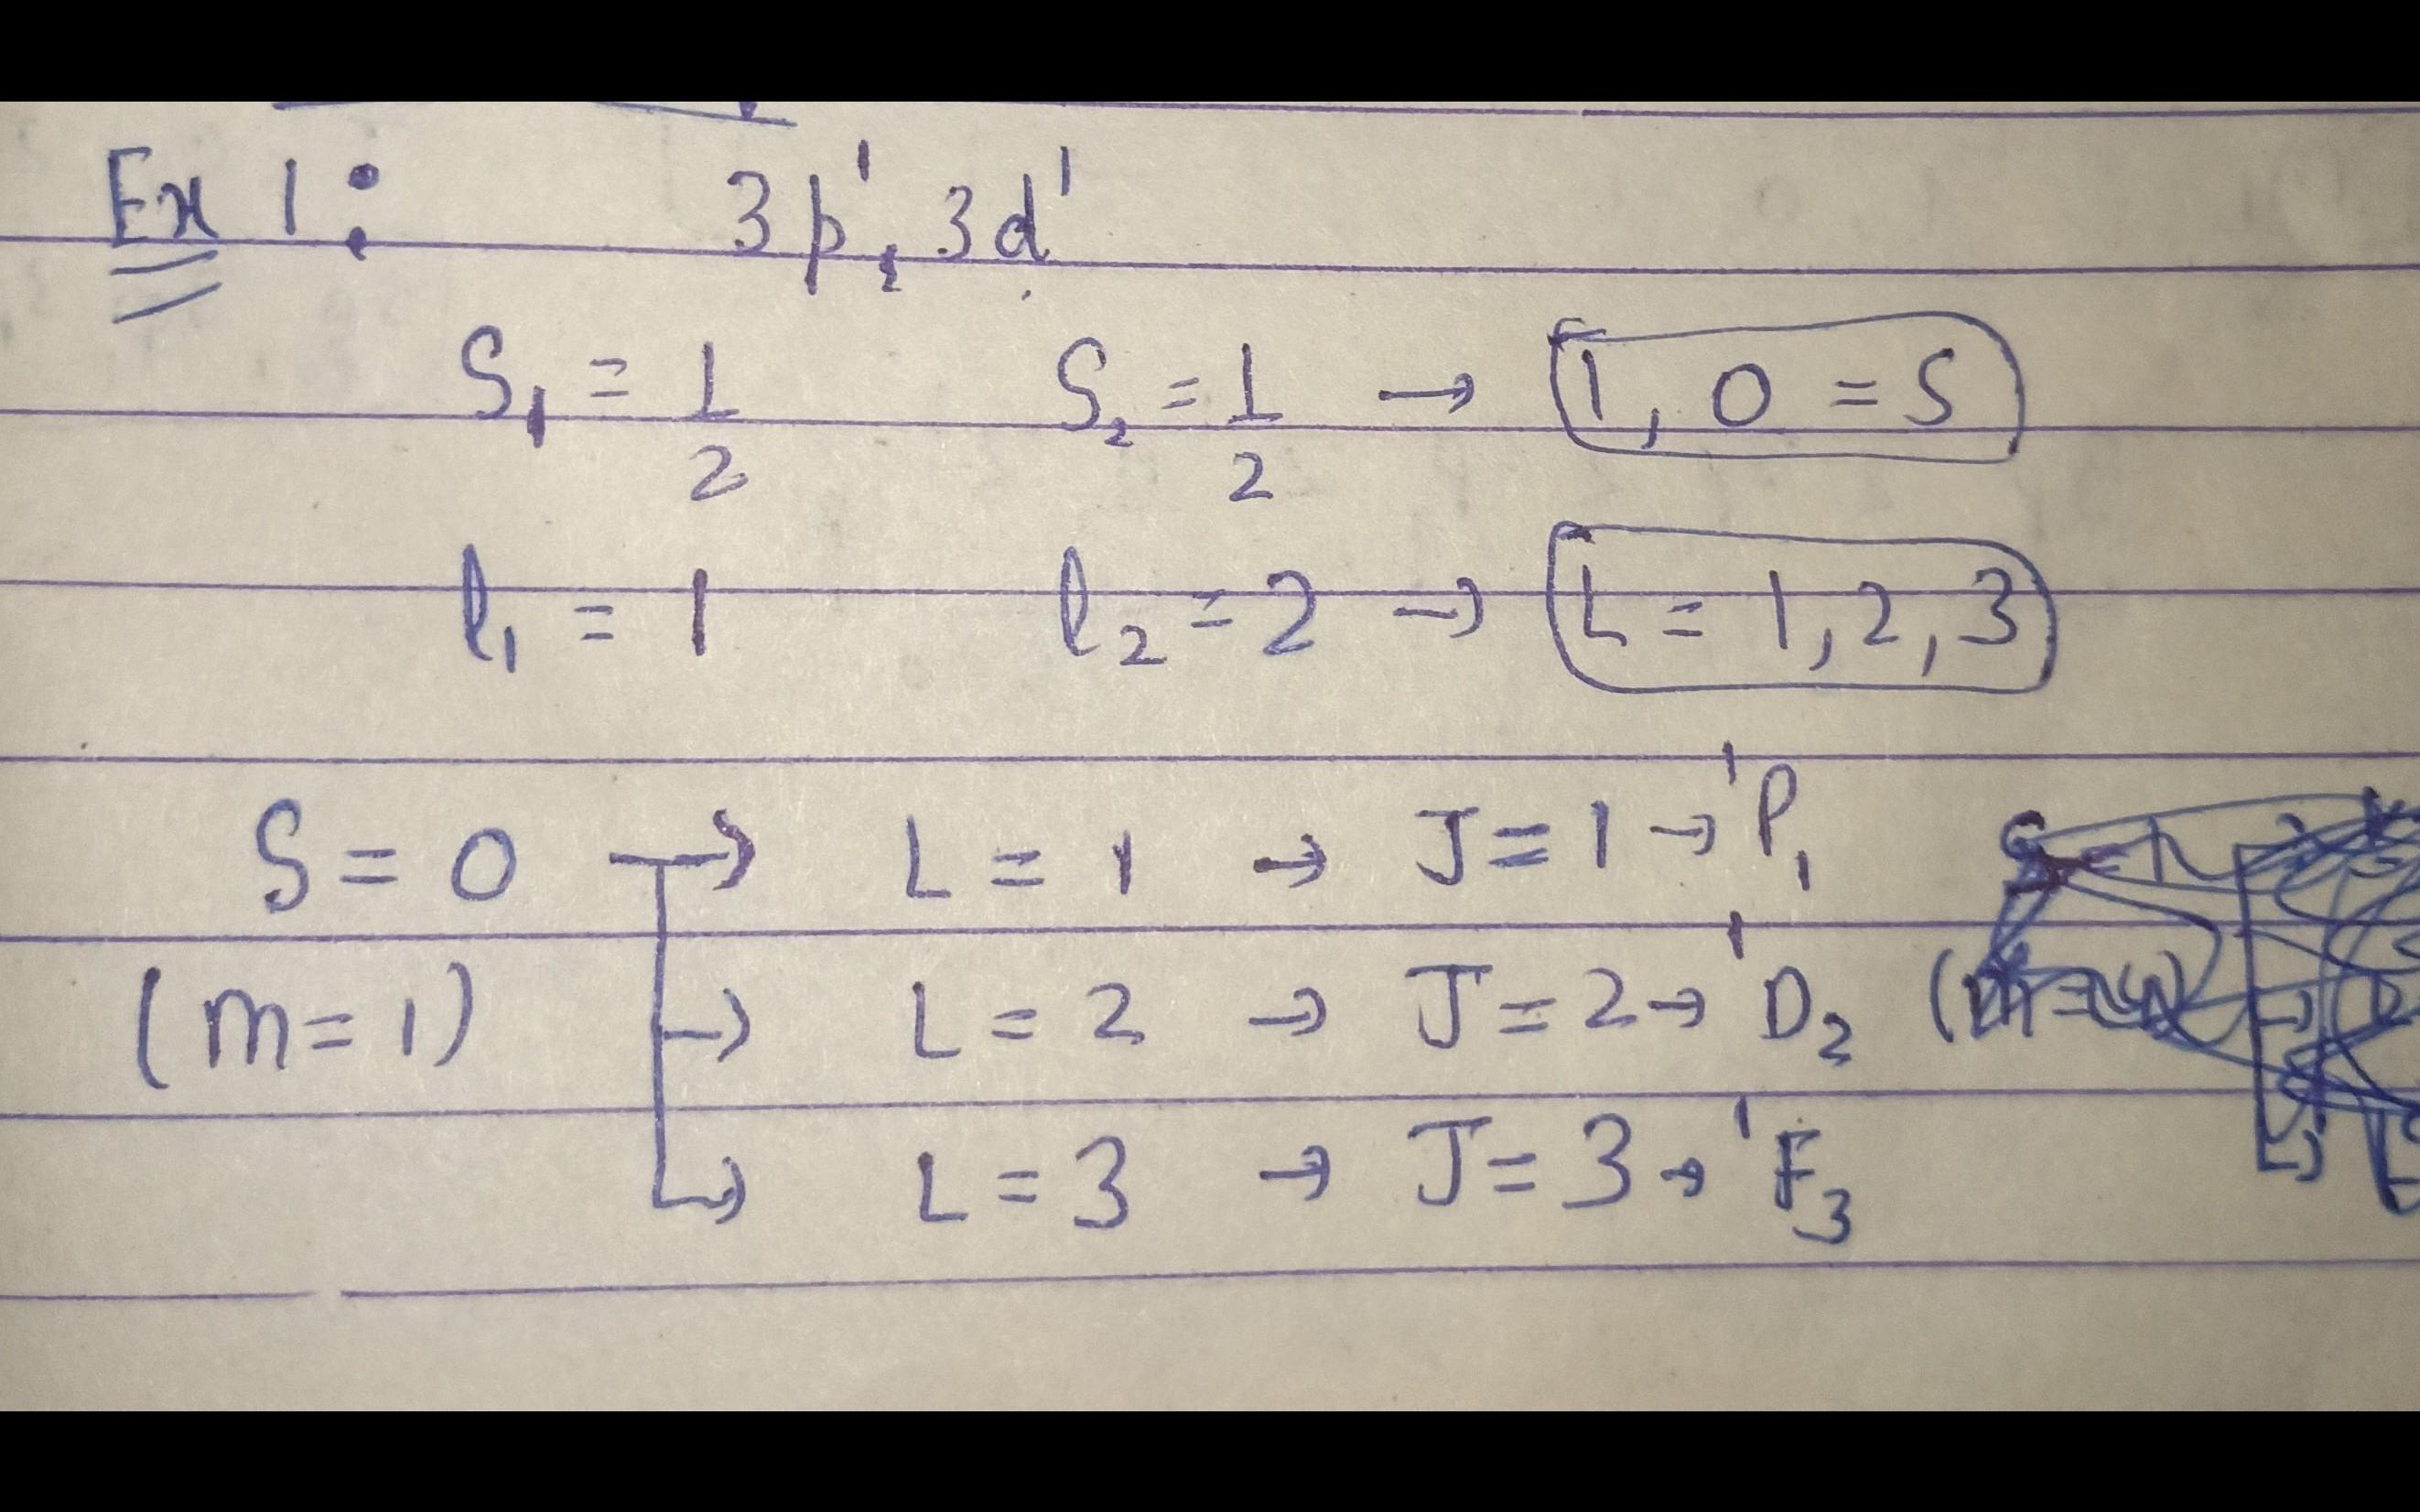 Ex 1: 3p¹, 3d¹
S₁ = 1/2 S₂ = 1/2 → 1, 0 = S
l₁ = 1 l₂ = 2 → L = 1, 2, 3
S = 0 → L = 1 → J = 1 → ¹P₁
(m = 1) → L = 2 → J = 2 → ¹D₂
→ L = 3 → J = 3 → ¹F₃